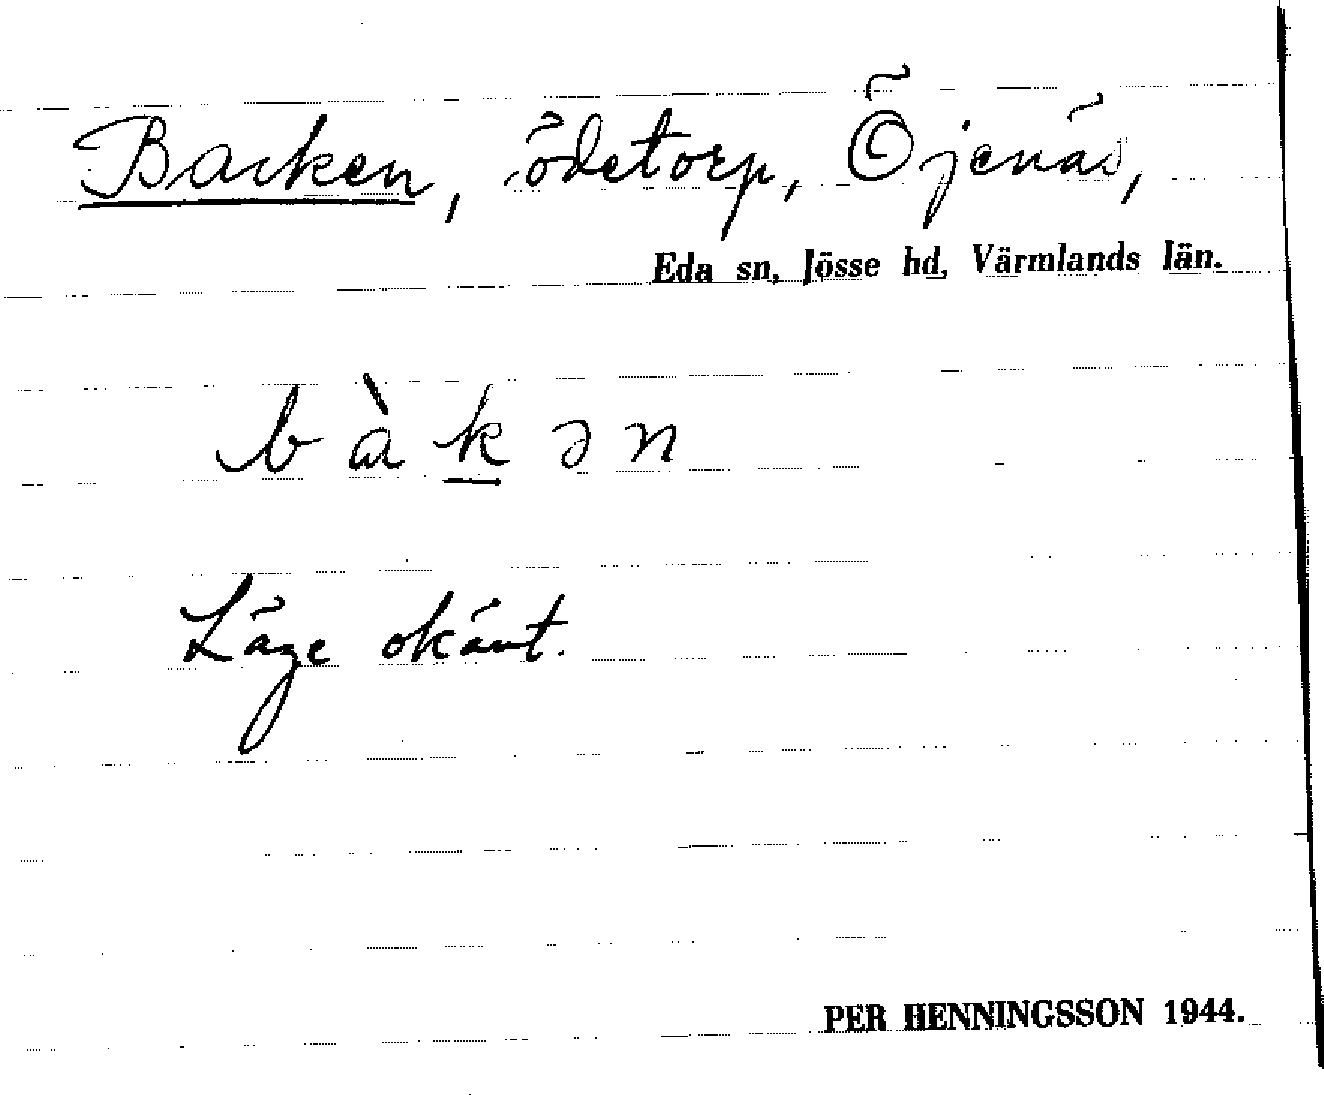 Backen, ödetorp, Öjenäs,
Eda sn, Jösse hd, Värmlands län.
bàkən
Läge okänt.
PER HENNINGSSON 1944.